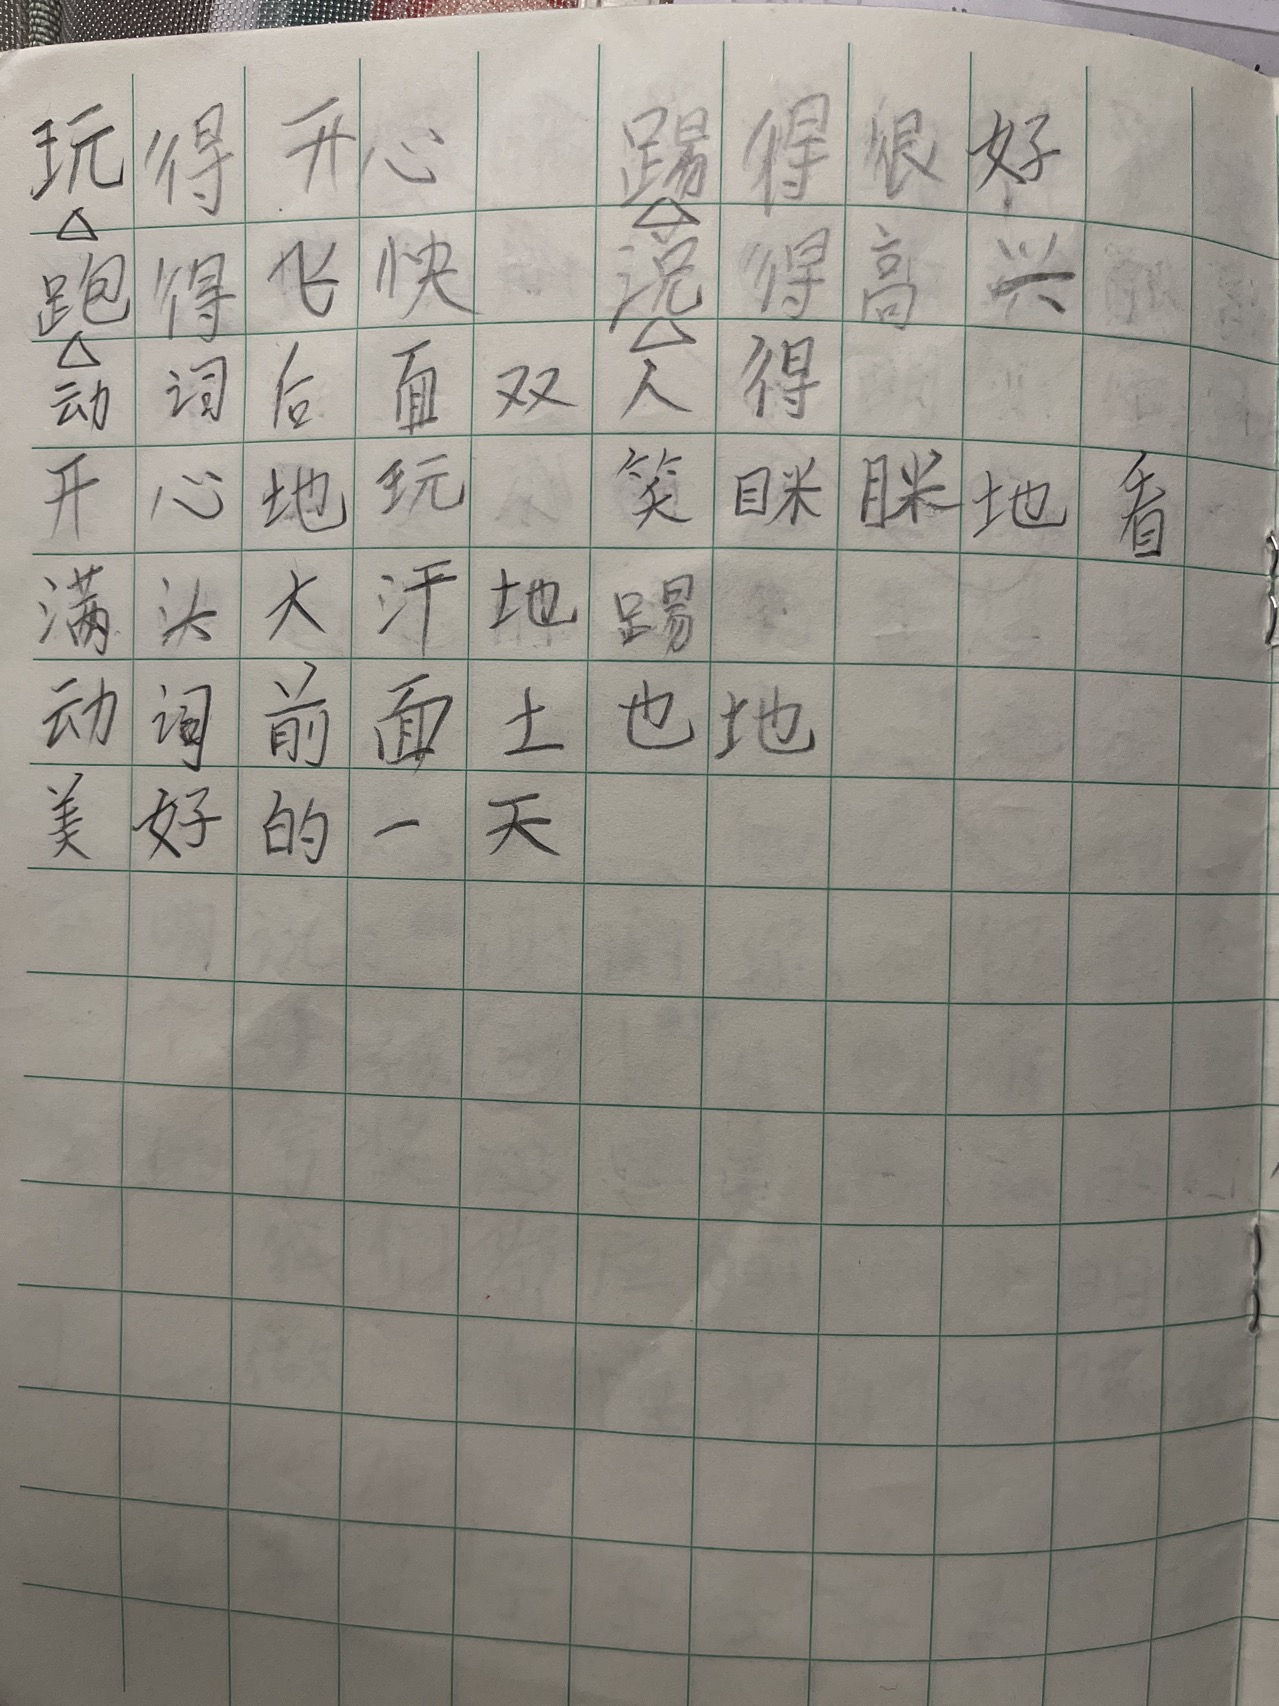 玩得开心 踢得很好
△ △
跑得飞快 说得高兴
△ △
动词后面双人得
开心地玩 笑眯眯地看
满头大汗地踢
动词前面土也地
美好的一天